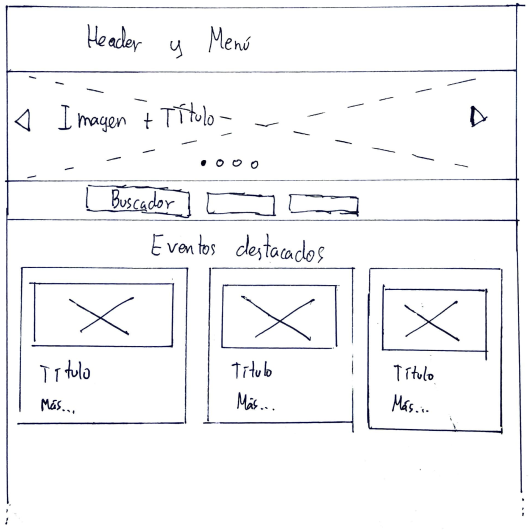 Header y Menú
Imagen + Título
Buscador
Eventos destacados
Título
Más...
Título
Más...
Título
Más...